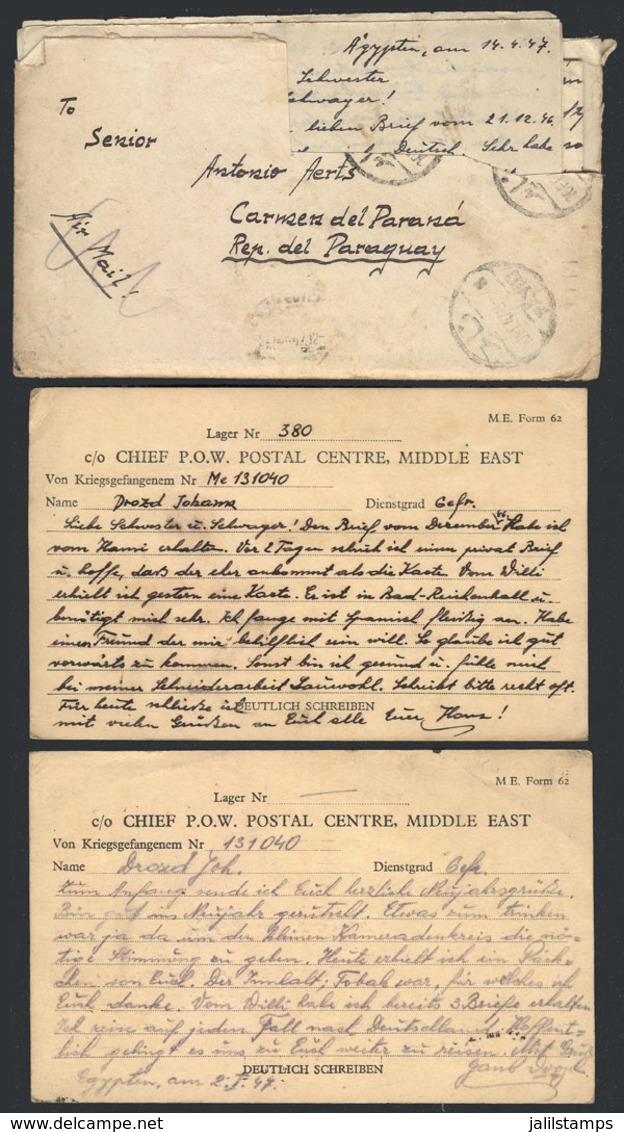 Ägypten, am 14.4.47.
Schwester
Schwager!
lieben Brief vom 21.12.46
Deutsch. Sehr habe
To
Senior
Antonio Aerts
Carmen del Paraná
Rep. del Paraguay
Air Mail!
M.E. Form 62
Lager Nr 380
c/o CHIEF P.O.W. POSTAL CENTRE, MIDDLE EAST
Von Kriegsgefangenem Nr Me 131040
Name Drozd Johann Dienstgrad Gefr.
Liebe Schwester u. Schwager! Den Brief vom Dezember 46 habe ich
vom Hami erhalten. Vor 2 Tagen schrieb ich einen privat Brief
u. hoffe, daß der eher ankommt als die Karte. Vom Willi
erhielt ich gestern eine Karte. Er ist in Bad-Reichenhall u.
benötigt mich sehr. Ich fange mit Spanisch fleißig an. Habe
einen Freund der mir behilflich sein will. So glaube ich gut
vorwärts zu kommen. Sonst bin ich gesund u. fühle mich
bei meiner Schneiderarbeit Sauwohl. Schreibt bitte recht oft.
Für heute schließe ich
DEUTLICH SCHREIBEN
mit vielen Grüßen an Euch alle Euer Hans!
M.E. Form 62
Lager Nr
c/o CHIEF P.O.W. POSTAL CENTRE, MIDDLE EAST
Von Kriegsgefangenem Nr 131040
Name Drozd Joh. Dienstgrad Gefr.
Zum Anfang sende ich Euch herzliche Neujahrsgrüße.
Bin gut ins Neujahr gerutscht. Etwas zum trinken
war ja da um den kleinen Kameradenkreis die nö-
tige Stimmung zu geben. Heute erhielt ich ein Päck-
chen von Euch. Der Innhalt; Tobak war, für welches ich
Euch danke. Vom Willi habe ich bereits 3 Briefe erhalten
Ich reise auf jeden Fall nach Deutschland. Hoffent-
lich gelingt es uns zu Euch weiter zu reisen. Mit Gruß
DEUTLICH SCHREIBEN
Egypten, am 2.I.47.
jalilstamps